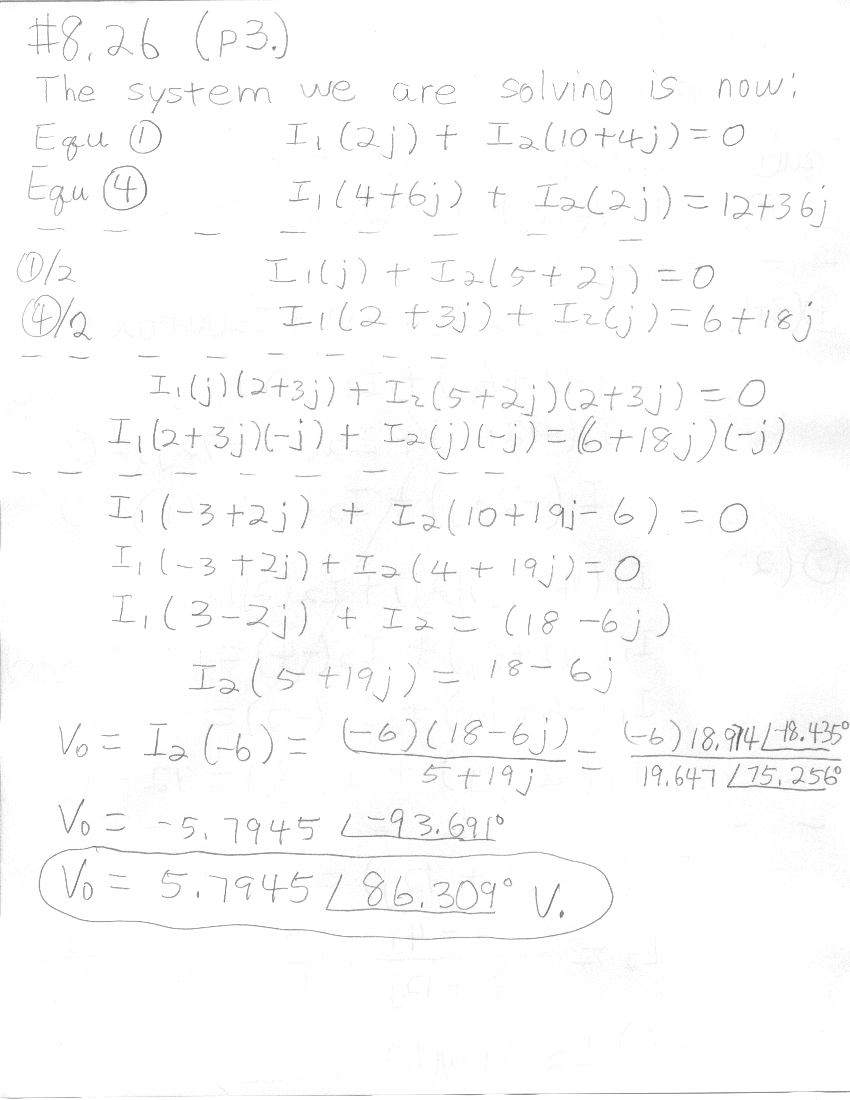 #8.26 (p3.)
The system we are solving is now:
Equ ① I₁(2j) + I₂(10+4j) = 0
Equ ④ I₁(4+6j) + I₂(2j) = 12+36j
①/2 I₁(j) + I₂(5+2j) = 0
④/2 I₁(2+3j) + I₂(j) = 6+18j
I₁(j)(2+3j) + I₂(5+2j)(2+3j) = 0
I₁(2+3j)(-j) + I₂(j)(-j) = (6+18j)(-j)
I₁(-3+2j) + I₂(10+19j-6) = 0
I₁(-3+2j) + I₂(4+19j) = 0
I₁(3-2j) + I₂ = (18-6j)
I₂(5+19j) = 18-6j
V₀ = I₂(-6) = (-6)(18-6j) / 5+19j = (-6)18.974∠-18.435° / 19.647∠75.256°
V₀ = -5.7945∠-93.691°
V₀ = 5.7945∠86.309° V.